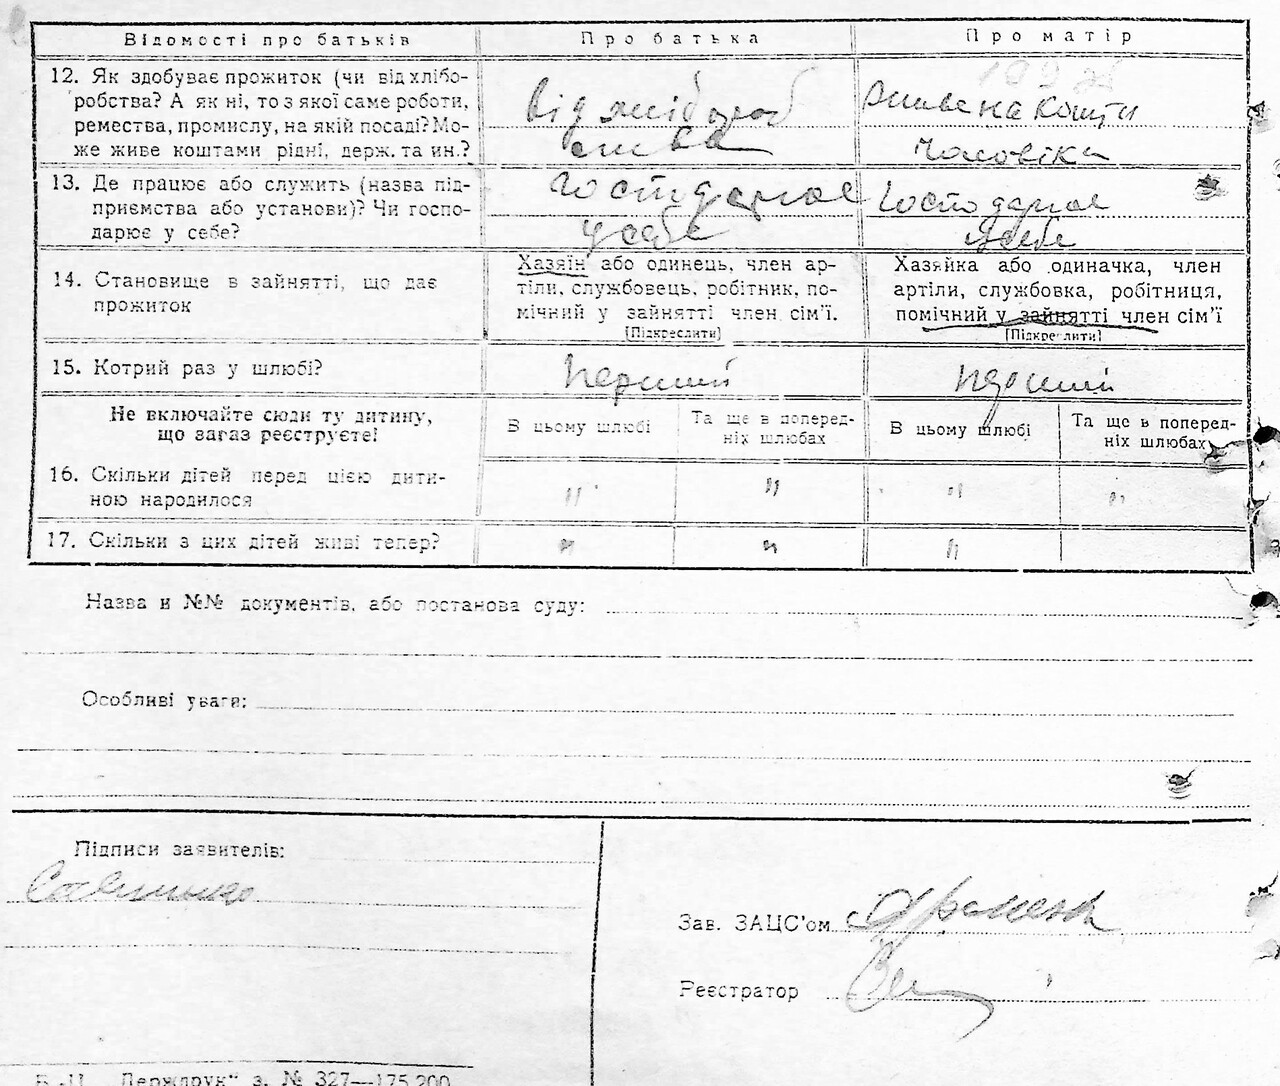 Відомості про батьків
Про батька
Про матір
12. Як здобуває прожиток (чи від хлібо-
робства? А як ні, то з якої саме роботи,
ремества, промислу, на якій посаді? Мо-
же живе коштами рідні, держ. та ин.?
від хлібороб
ства
живе на кошти
чоловіка
13. Де працює або служить (назва під-
приємства або установи)? Чи госпо-
дарює у себе?
Господарює
у себе
Господарює
у себе
14. Становище в зайнятті, що дає
прожиток
Хазяїн або одинець, член ар-
тіли, службовець, робітник, по-
мічний у зайнятті член сім'ї.
[Підкреслити]
Хазяйка або одиначка, член
артіли, службовка, робітниця,
помічний у зайнятті член сім'ї
[Підкреслити]
15. Котрий раз у шлюбі?
перший
перший
Не включайте сюди ту дитину,
що зараз реєструєте!
В цьому шлюбі
Та ще в поперед-
ніх шлюбах
В цьому шлюбі
Та ще в поперед-
ніх шлюбах
16. Скільки дітей перед цією дити-
ною народилося
" " " "
17. Скільки з цих дітей живі тепер?
" " "
Назва и №№ документів, або постанова суду:
Особливі уваги:
Підписи заявителів:
Зав. ЗАЦС'ом
Реєстратор
"Держдрук" з. № 327—175.200